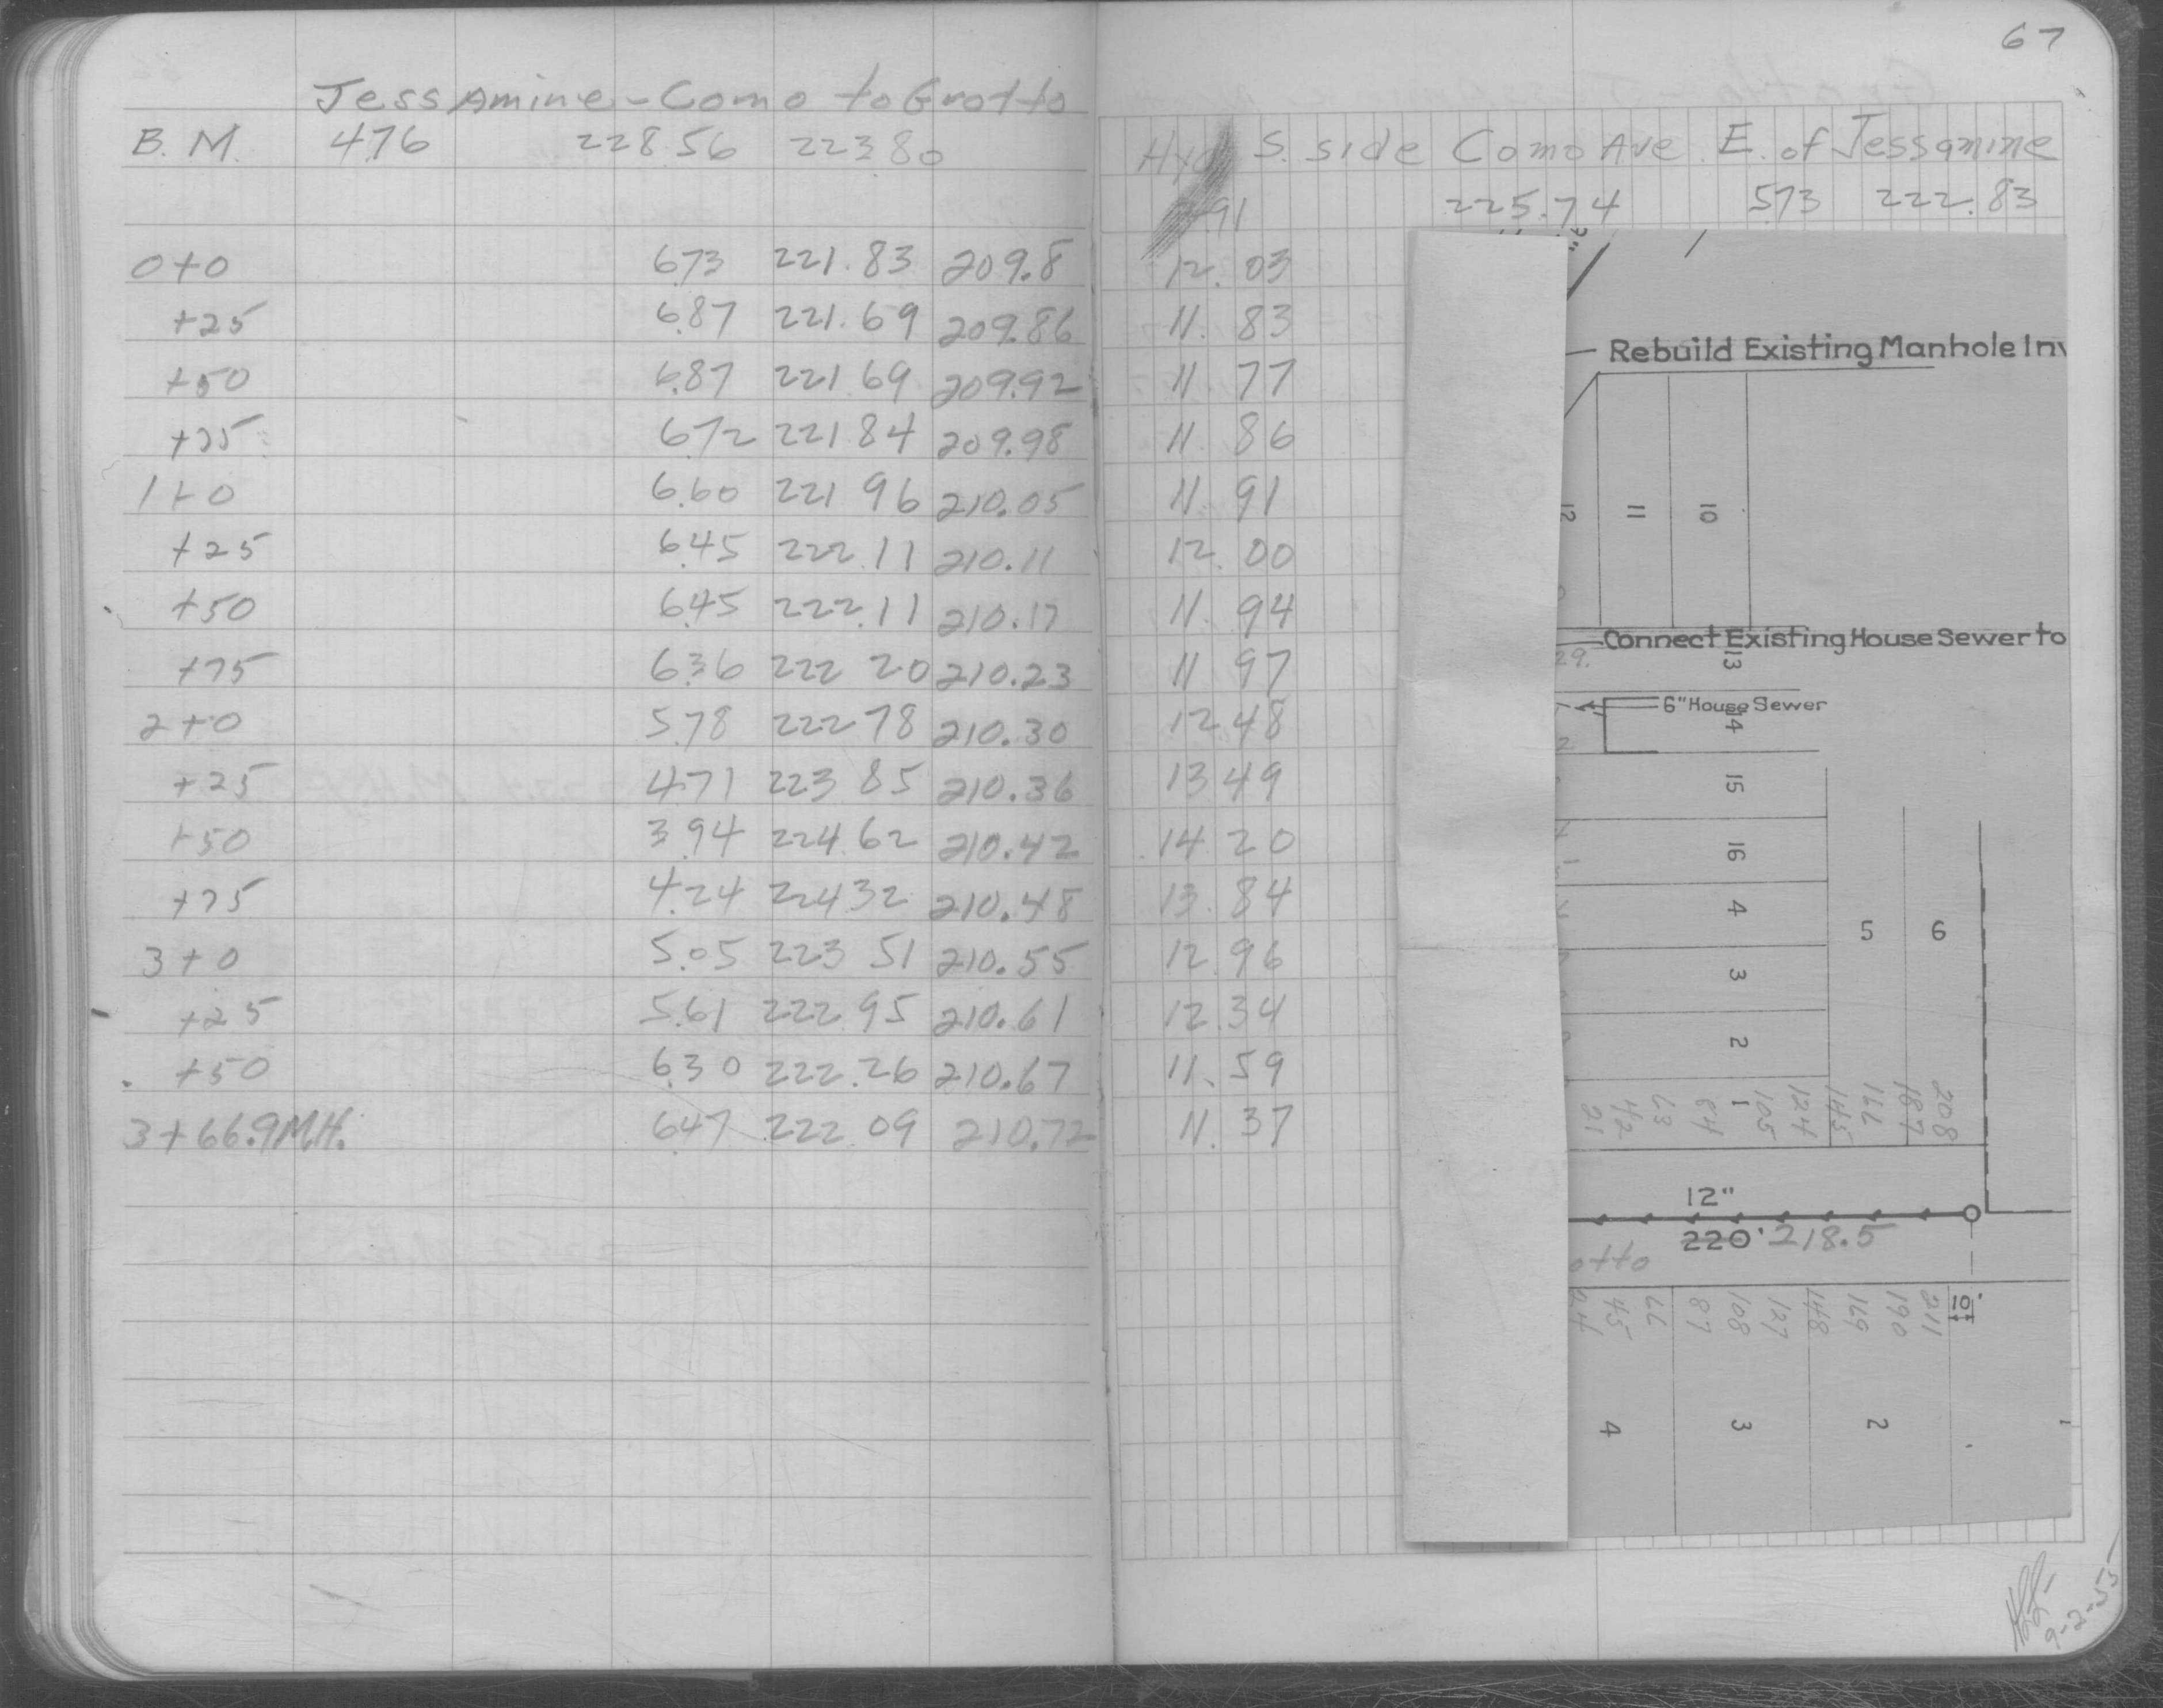 67
Jessamine - Como to Grotto
B. M. 4.76 228.56 223.80 Hyd S. side Como Ave E. of Jessamine
91 225.74 5.73 222.83
0+0 6.73 221.83 209.8 12.03
+25 6.87 221.69 209.86 11.83
+50 6.87 221.69 209.92 11.77
+75 6.72 221.84 209.98 11.86
1+0 6.60 221.96 210.05 11.91
+25 6.45 222.11 210.11 12.00
+50 6.45 222.11 210.17 11.94
+75 6.36 222.20 210.23 11.97
2+0 5.78 222.78 210.30 12.48
+25 4.71 223.85 210.36 13.49
+50 3.94 224.62 210.42 14.20
+75 4.24 224.32 210.48 13.84
3+0 5.05 223.51 210.55 12.96
+25 5.61 222.95 210.61 12.34
+50 6.30 222.26 210.67 11.59
3+66.9 M.H. 6.47 222.09 210.72 11.37
Rebuild Existing Manhole Inv
12 11 10
Connect Existing House Sewer to
29.
13
6" House Sewer
14
15
16
4
5 6
3
2
1
21 42 63 84 105 124 145 166 187 208
12"
220' 218.5
otto
45 66 87 108 127 148 169 190 211
10'
4 3 2 1
9-2-55